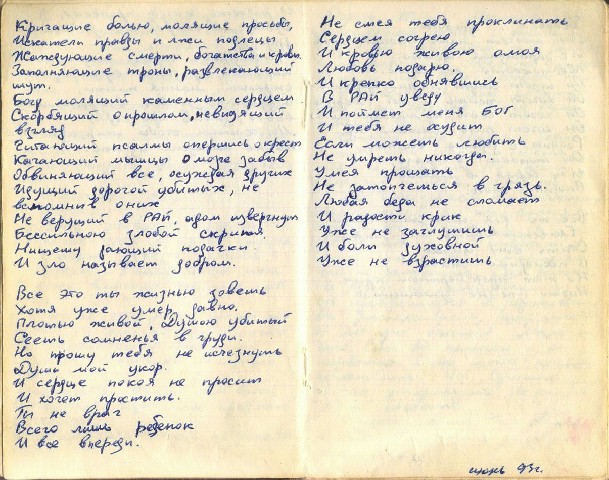 Кричащие болью, молящие просьбы,
Искатели правды и лжи подлецы
Жаждующие смерти, богатства и крови
Заполняющие троны, развлекающий
шут.
Богу молящий каменным сердцем
Скорбящий о прошлом, невидящий
взгляд
Читающий псалмы опершись о крест
Качающий мышцы о мозге забыв
Обвиняющий все, осуждая других
Идущий дорогой убитых, не
вспомнив о них
Не верущий в РАЙ, адом извергнут
Бессильною злобой скрипя.
Нищему дающий подачки.
И зло называет добром.
Все это ты жизнью зоветь
Хотя уже умер давно.
Плотью живой, Душою убитый
Сееть сомненья в груди.
Но прошу тебя не исчезнуть
Душь мой укор.
И сердце покоя не просит
И хочет простить.
Ты не враг
Всего лишь ребенок
И все впереди.
Не смея тебя проклинать
Сердцем согрею
И кровью живою омоя
Любовь подарю.
И крепко обнявшись
В РАЙ уведу
И поймет меня БОГ
И тебя не осудит
Если можеть любить
Не умреть никогда.
Умея прощать
Не затопчеться в грязь.
Любая беда не сломает
И радости крик
Уже не заглушить
И боли духовной
Уже не взрастить
июнь 93г.